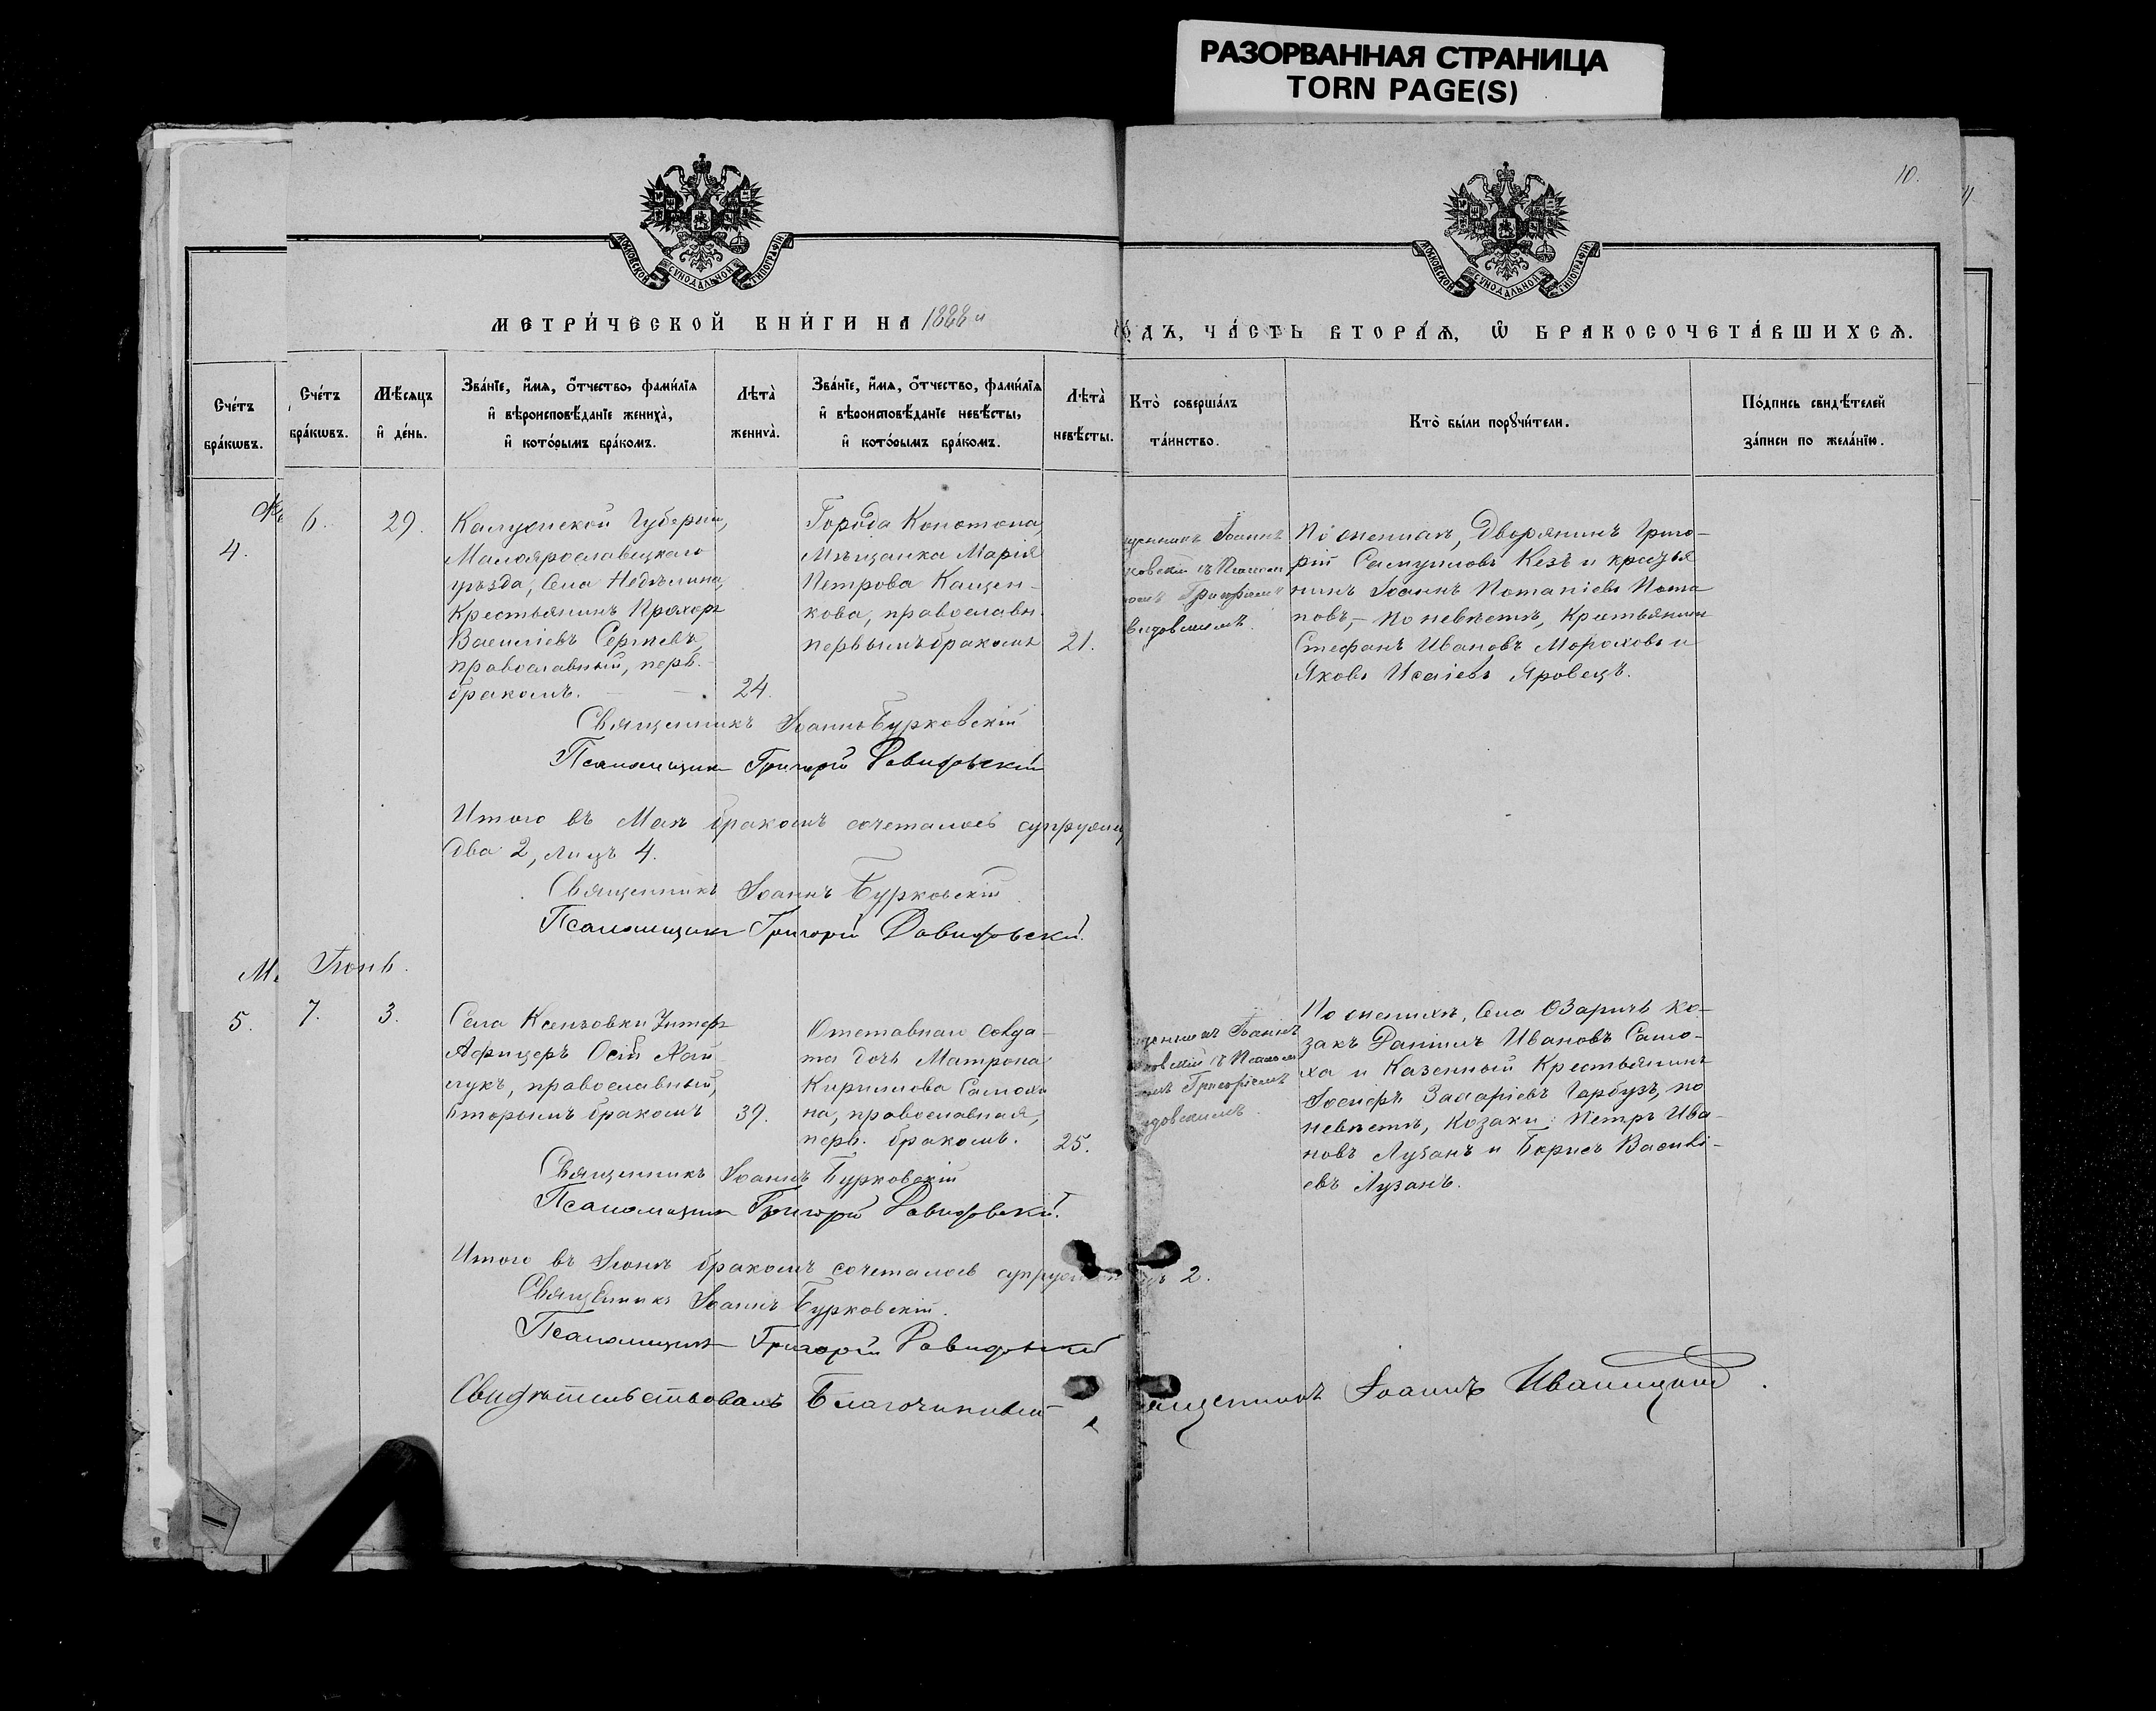 РАЗОРВАННАЯ СТРАНИЦА
TORN PAGE(S)
10.
МОСКОВСКОЙ СУНОДАЛЬНОЙ ТИПОГРАФІИ
МОСКОВСКОЙ СУНОДАЛЬНОЙ ТИПОГРАФІИ
МЕТРИ́ЧЕСКОЙ КНИ́ГИ НА 1888 й
ДЪ, ЧА́СТЬ ВТОРА́Ѧ, Ѡ БРАКОСОЧЕТА́ВШИХСѦ.
Сче́тъ
бра́кѡвъ.
Сче́тъ
бра́кѡвъ.
Мѣ́сяцъ
и де́нь.
Зва́нїе, и́мѧ, ѻ́тчество, фами́лїѧ
и вѣроисповѣ́данїе жениха̀,
и кото́рымъ бра́комъ.
Лѣта̀
жениха̀.
Зва́нїе, и́мѧ, ѻ́тчество, фами́лїѧ
и вѣроисповѣ́данїе невѣ́сты,
и кото́рымъ бра́комъ.
Лѣта̀
невѣ́сты.
Кто̀ соверша́лъ
та́инство.
Кто̀ бы́ли порꙋчи́тели.
По́дпись свидѣ́телей
за́писи по жела́нїю.
4.
6.
29.
Калужской Губерніи,
Малоярославецкаго
уѣзда, Села Недѣлина,
Крестьянинъ Прохоръ
Василіевъ Сергѣевъ,
православный, перв.
бракомъ.
24.
Города Конотопа,
Мѣщанка Марія
Петрова Кащен-
кова, православн.
первымъ бракомъ
21.
щенникъ Іоаннъ
ковскій съ Псалом
омъ Григоріемъ
видовскимъ.
По женихѣ, Дворянинъ Григо-
рій Самуиловъ Кезъ и крестья
нинъ Іоаннъ Потапіевъ Пота
повъ, - По невѣстѣ, Крестьянинъ
Стефанъ Ивановъ Мороховъ и
Яковъ Исаіевъ Яровецъ.
Священникъ Іоаннъ Бурковскій
Псаломщикъ Григорій Давидовскій
Итого въ Маѣ бракомъ сочеталось супруж
два 2, лицъ 4.
Священникъ Іоаннъ Бурковскій
Псаломщикъ Григорій Давидовскій.
М
Іюнь.
5.
7.
3.
Села Ксензовки Унтеръ
Афицеръ Осипъ
православный,
вторымъ бракомъ
39.
Отставнаго солда-
та дочь Матрона
Кирилова Самохи
на, православная,
перв. бракомъ.
25.
щенникъ Іоаннъ
ковскій съ Псалом
омъ Григоріемъ
идовскимъ.
По женихѣ, Села Озаричъ ко-
закъ Даніилъ Ивановъ Само-
ха и Казенный Крестьянинъ
Іосифъ Захаріевъ Гарбузъ, по
невѣстѣ, Козаки: Петръ Ива-
новъ Лузанъ и Борисъ Василі-
евъ Лузанъ.
Священникъ Іоаннъ Бурковскій
Псаломщикъ Григорій Давидовскій.
Итого въ Іюнѣ бракомъ сочеталось супруж 2.
Священникъ Іоаннъ Бурковскій.
Псаломщикъ Григорій Давидовскій
Свидѣтельствовалъ Благочинный ященникъ Іоаннъ Иваницкій.